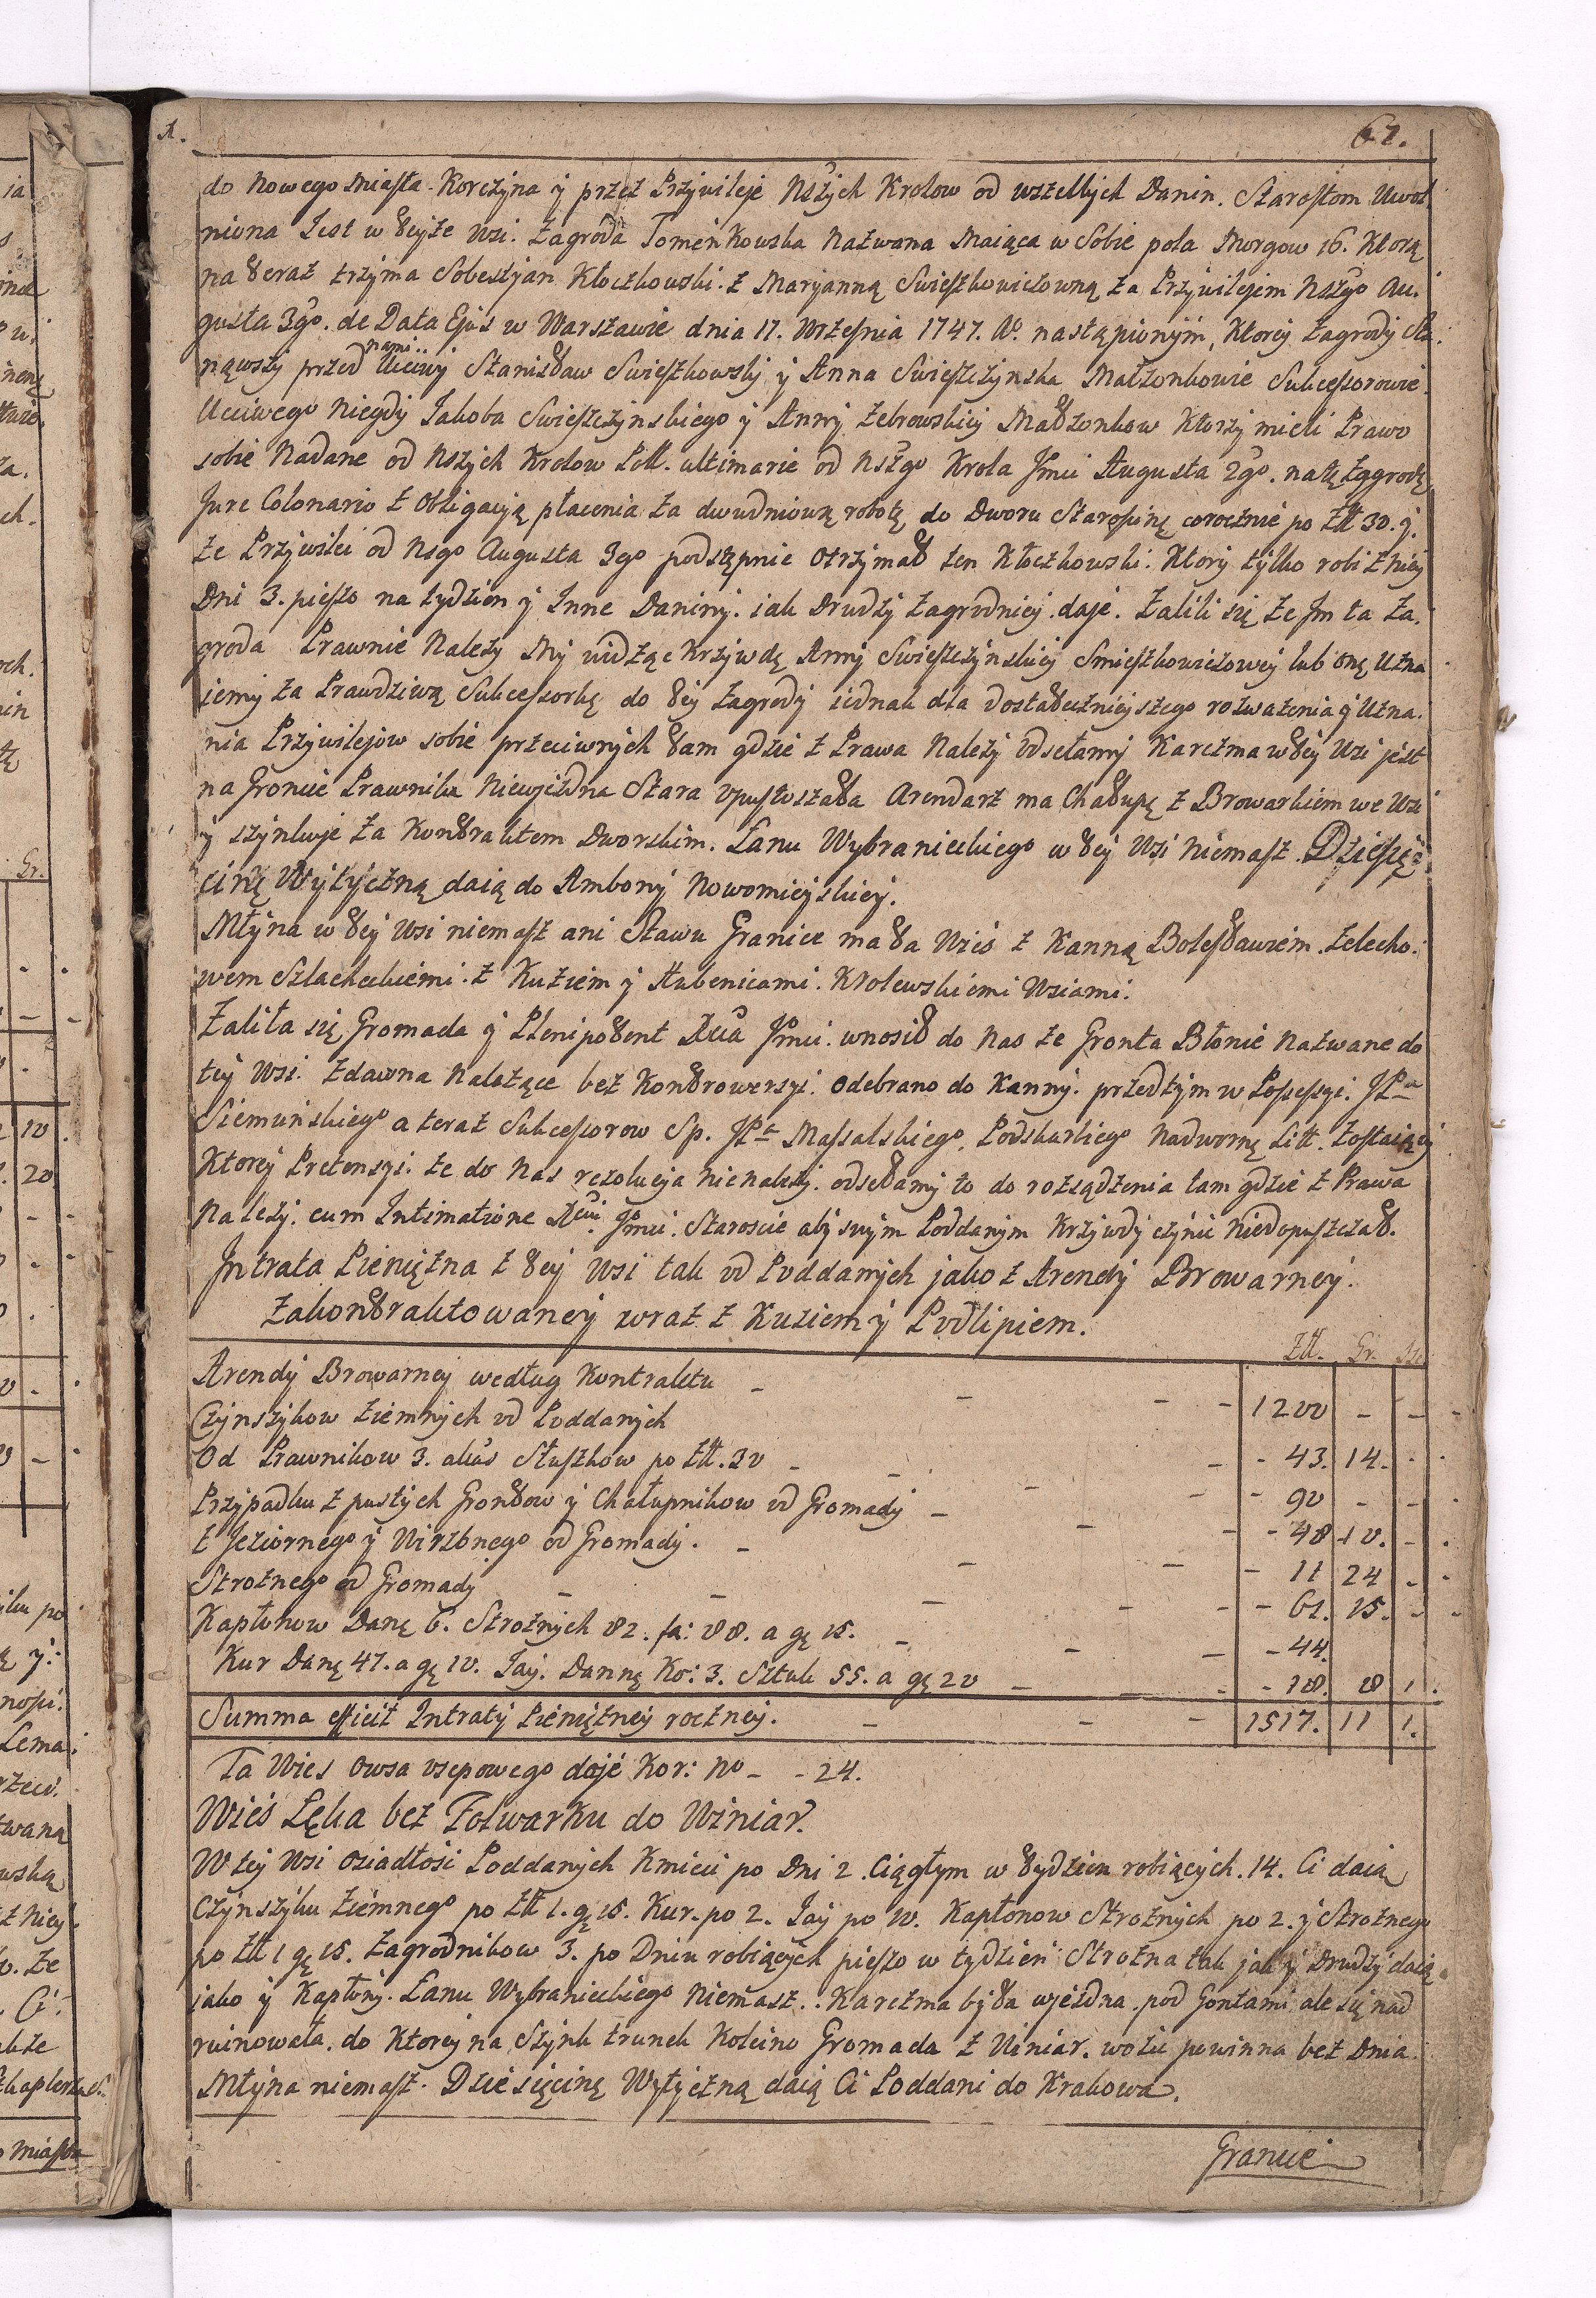 61.
do Nowego Miasta Korczyna y przez Przywileje Nszych Krolow od wszelkich Danin. Starostom Uwol
niona Jest w teyze Wsi. Zagroda Tomenkowska Nazwana Maiąca w Sobie pola Morgow 16. Ktorą
na teraz trzyma Sobestyan Kłoczkowski. z Maryanną Swieszkowiczowną za Przywilejem Nszgo Au.
gusta 3go. de Data Ejus w Warszawie dnia 17. Wrzesnia 1747. Ao. nastąpionym, Ktorey Zagrody Sta.
nąwszy przed nami Ucciwy Stanisław Swieszkowsky y Anna Swiesczynska Małzonkowie Sukcessorowie
Ucciwego Niegdy Jakoba Swiesczynskiego y Anny Zebrowskiey Małzonkow Ktorzy mieli Prawo
sobie Nadane od Nszych Krolow Poll. ultimarie od Nszgo Krola Jmci Augusta 2go. na tę Zagrodę
Jure Colonario z Obligacyą płacenia za dwudniową robotę do Dworu Starośinę corocznie po Złł 30. y.
ze Przywilei od Nsgo Augusta 3go podstępnie Otrzymał ten Kłoczkowski. Ktory tylko robi z niey
Dni 3. pieszo na tydzien y Inne Daniny. iak Drudzy Zagrodnicy. daje. Zalili się ze Jm ta Za.
groda Prawnie Nalezy My widząc Krzywdę Anny Swiesczynskiey Smieszkowiczowey lub onę Uzna
iemy za Prawdziwą Sukcessorkę do tey Zagrody iednak dla dostatecznieyszego rozwazenia y Uzna.
nia Przywilejow sobie przeciwnych tam gdzie z Prawa Nalezy odsełamy Karczma w tey Wsi jest
na Groncie Prawnika Niewjezdna Stara opustoszała Arendarz ma Chałupę z Browarkiem we Wsi
y szynkuje za Kontraktem Dworskim. Łanu Wybranieckiego w tey Wsi Niemasz. Dziesię=
cinę Wytyczną daią do Ambony Nowomieyskiey.
Młyna w tey Wsi niemasz ani Stawu Granice ma ta Wieś z Kanną Bolesławiem. Zelecho.
wem Szlacheckiemi. z Kuziem y Hubenicami. Krolewskiemi Wsiami.
Zaliła się Gromada y Plenipotent Jmci. wnosił do Nas ze Gronta Błonie Nazwane do
tey Wsi. Zdawna Nalezące bez Kontrowersyi. Odebrano do Kanny. przedtym w Possessyi. JPa
Siemuńskiego a teraz Sukcessorow Sp. JPa Massalskiego. Podskarbiego Nadwornę Litt. Zostaiącey
Ktorey Pretensyi. ze do Nas rezolucya nienalezy. odsełamy to do rozsądzenia tam gdzie z Prawa
Nalezy. cum Intimatione Jmci. Staroscie aby swym Poddanym Krzywdy czynić Niedopuszczał.
Jntrata Pieniężna z tey Wsi tak od Poddanych jako z Arendy Browarney.
Zakontraktowaney wraz z Kuziem y Podlipiem.
Złł. Gr. Sz.
Arendy Browarney według Kontraktu - - - - 1200 - -
Czynszykow Ziemnych od Poddanych - 43. 14.
Od Prawnikow 3. alias Stuszkow po Złł. 30 - - - 90 - -
Przypadku z pustych Grontow y Chałupnikow od Gromady - - - 48 10. -
Z Jeziornego y Wirzbnego od Gromady. - - - 11 24 -
Stroznego od Gromady - - - 61. 15. -
Kapłonow Danę 6. Stroznych 82. fa: 88. a gę 15. - - - 44.
Kur Danę 47. a gę 10. Jay. Danne Ko: 3. Sztuk 55. a gę 20 - - - 18. 8 1.
Summa efficit Intraty Pieniężney roczney. - - - 1517. 11 1.
Ta Wies Owsa osepowego daje Kor: No - - 24.
Wieś Łęka bez Folwarku do Winiar.
W tey Wsi Osiadłosi Poddanych Kmieci po Dni 2. Ciągłym w tydzien robiących. 14. Ci daią
Czynszyku Ziemnego po Złł 1. gę 15. Kur. po 2. Jay po 10. Kapłonow Stroznych po 2. y Stroznego
po Złł 1 gę 15. Zagrodnikow 3. po Dniu robiących pieszo w tydzien Strozna tak jak y Drudzy daią
jako y Kapłony. Łanu Wybranieckiego Niemasz.. Karczma była wjezdna. pod Gontami ale się nad
ruinowała. do Ktorey na Szynk trunek Kolcino Gromada z Winiar. wozic powinna bez Dnia.
Młyna niemasz. Dziesięcinę Wytyczną daią Ci Poddani do Krakowa.
Granice